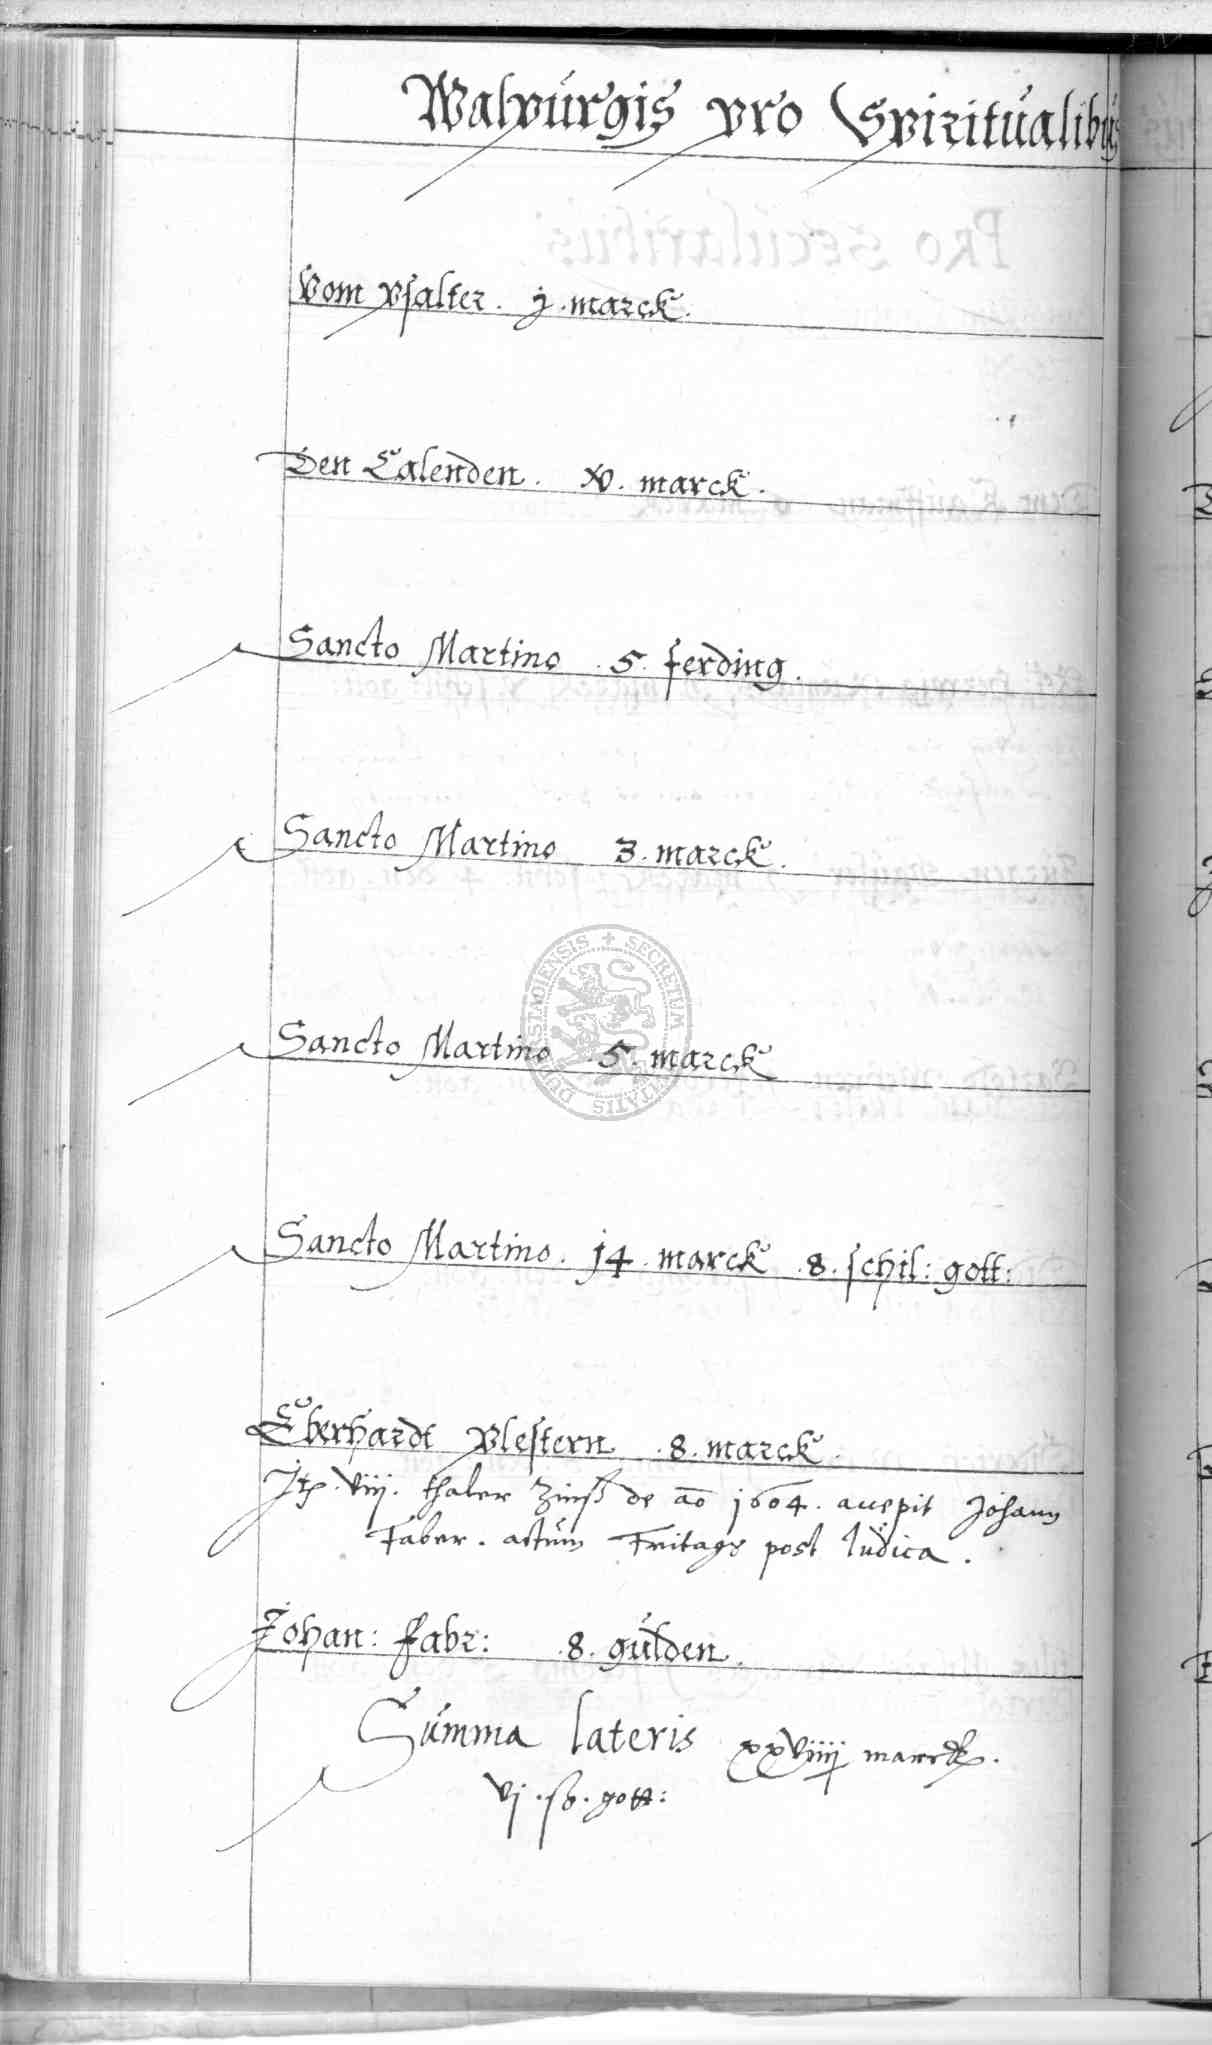 Walpurgis pro Spiritualibus
Vom psalter . j . marck .
Den Calenden . xv . marck .
Sancto Martino . 5 . ferding .
Sancto Martino 3 . marck .
Sancto Martino . 5 . marck
Sancto Martino . 14 . marck . 8 . schil : gott :
Eberhardt Plestern . 8 . marck .
Jtem . viij . thaler Zinß de ao 1604 . accepit Johann
Faber . actum Fritags post Iudica .
Johan : Fabr : . 8 . gulden .
Summa lateris xxviiij marck .
vj . ß . gott :
SECRETUM DUDERSTADIENSIS